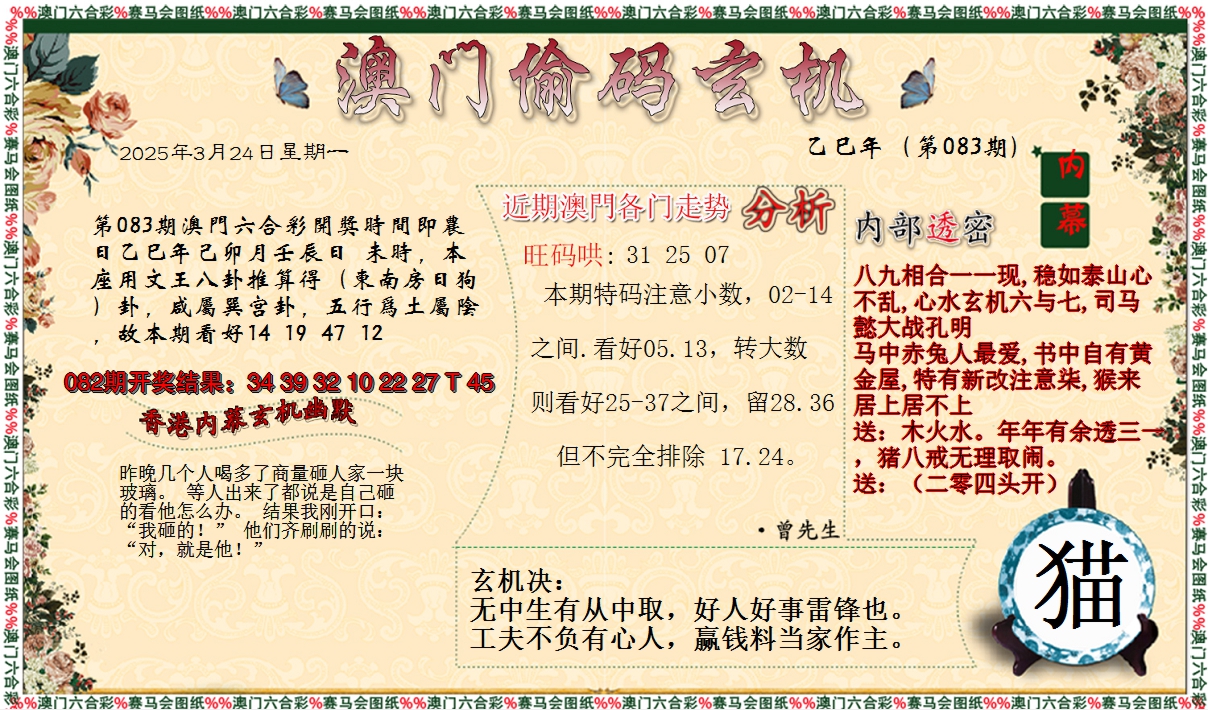 %%澳门六合彩%赛马会图纸%%澳门六合彩%赛马会图纸%%澳门六合彩%赛马会图纸%%澳门六合彩%赛马会图纸%%澳门六合彩%赛马会图纸%%澳门六合彩%赛马会图纸%%
澳门偷码玄机
2025年3月24日星期一
乙巳年（第083期）
内
幕
第083期澳門六合彩開獎時間即農
日乙巳年己卯月壬辰日 未時，本
座用文王八卦推算得（東南房日狗
）卦，咸屬巽宫卦，五行爲土屬陰
，故本期看好14 19 47 12
082期开奖结果：34 39 32 10 22 27 T 45
香港内幕玄机幽默
昨晚几个人喝多了商量砸人家一块
玻璃。 等人出来了都说是自己砸
的看他怎么办。 结果我刚开口：
“我砸的！” 他们齐刷刷的说：
“对，就是他！”
近期澳門各门走势 分析
旺码哄: 31 25 07
本期特码注意小数，02-14
之间.看好05.13，转大数
则看好25-37之间，留28.36
但不完全排除 17.24。
·曾先生
内部透密
八九相合一一现,稳如泰山心
不乱,心水玄机六与七,司马
懿大战孔明
马中赤兔人最爱,书中自有黄
金屋,特有新改注意柒,猴来
居上居不上
送：木火水。年年有余透三一
，猪八戒无理取闹。
送：（二零四头开）
玄机决：
无中生有从中取，好人好事雷锋也。
工夫不负有心人，赢钱料当家作主。
猫
%%澳门六合彩%赛马会图纸%%澳门六合彩%赛马会图纸%%澳门六合彩%赛马会图纸%%澳门六合彩%赛马会图纸%%澳门六合彩%赛马会图纸%%澳门六合彩%赛马会图纸%%